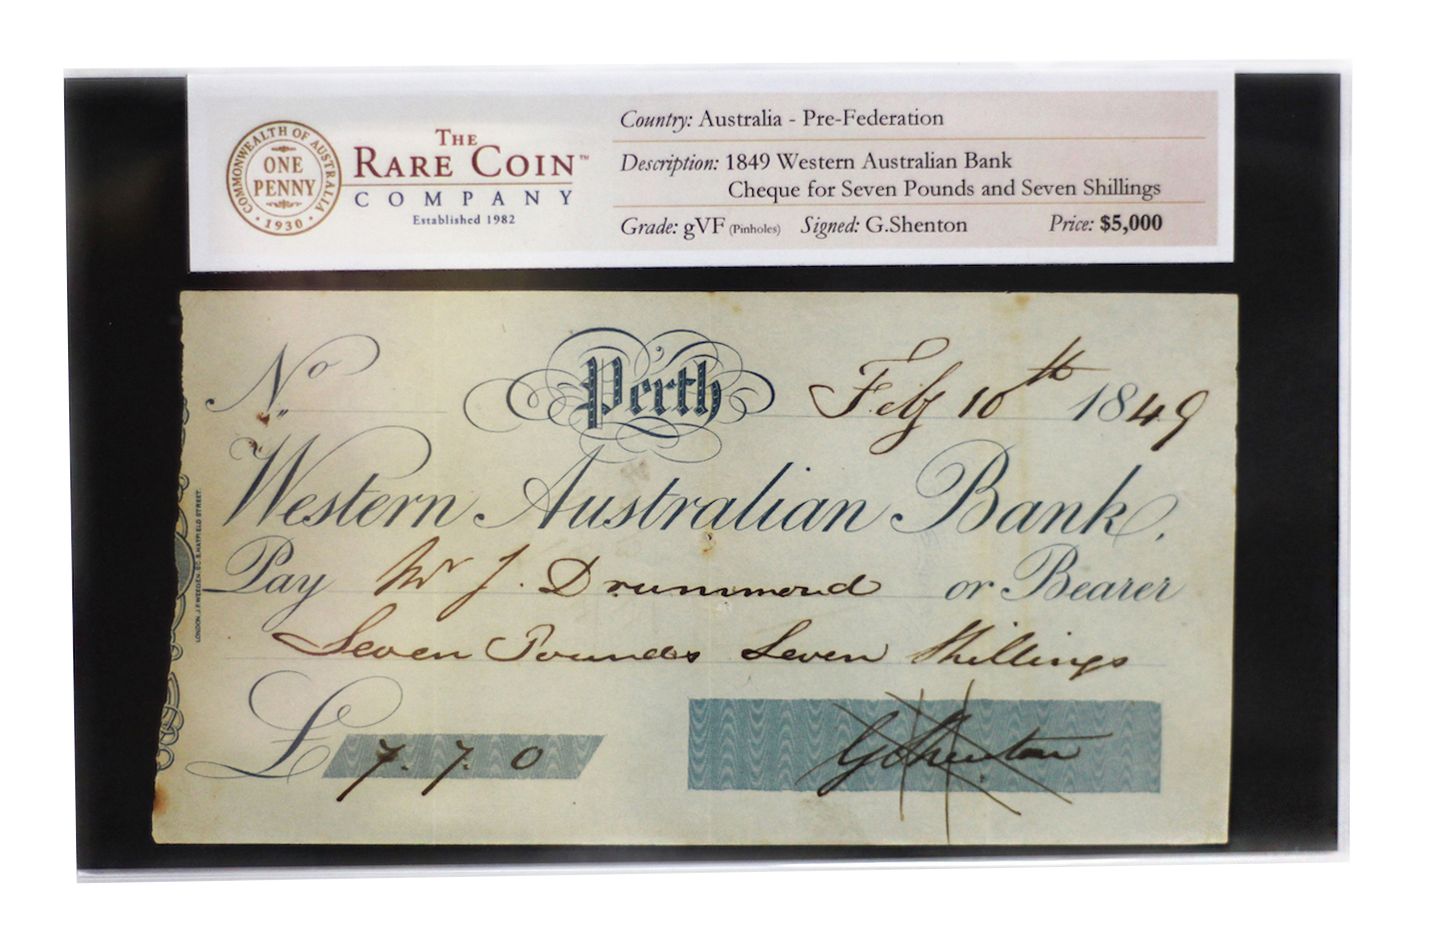 COMMONWEALTH OF AUSTRALIA
ONE
PENNY
· 1930 ·
THE
RARE COIN™
COMPANY
Established 1982
Country: Australia - Pre-Federation
Description: 1849 Western Australian Bank
Cheque for Seven Pounds and Seven Shillings
Grade: gVF (Pinholes) Signed: G.Shenton Price: $5,000
No Perth Feby 10th 1849
Western Australian Bank.
Pay Mr J. Drummond or Bearer
Seven Pounds Seven Shillings
£ 7. 7. 0 GShenton
LONDON. J.P. WEEDEN. SC. 9. HATFIELD STREET.